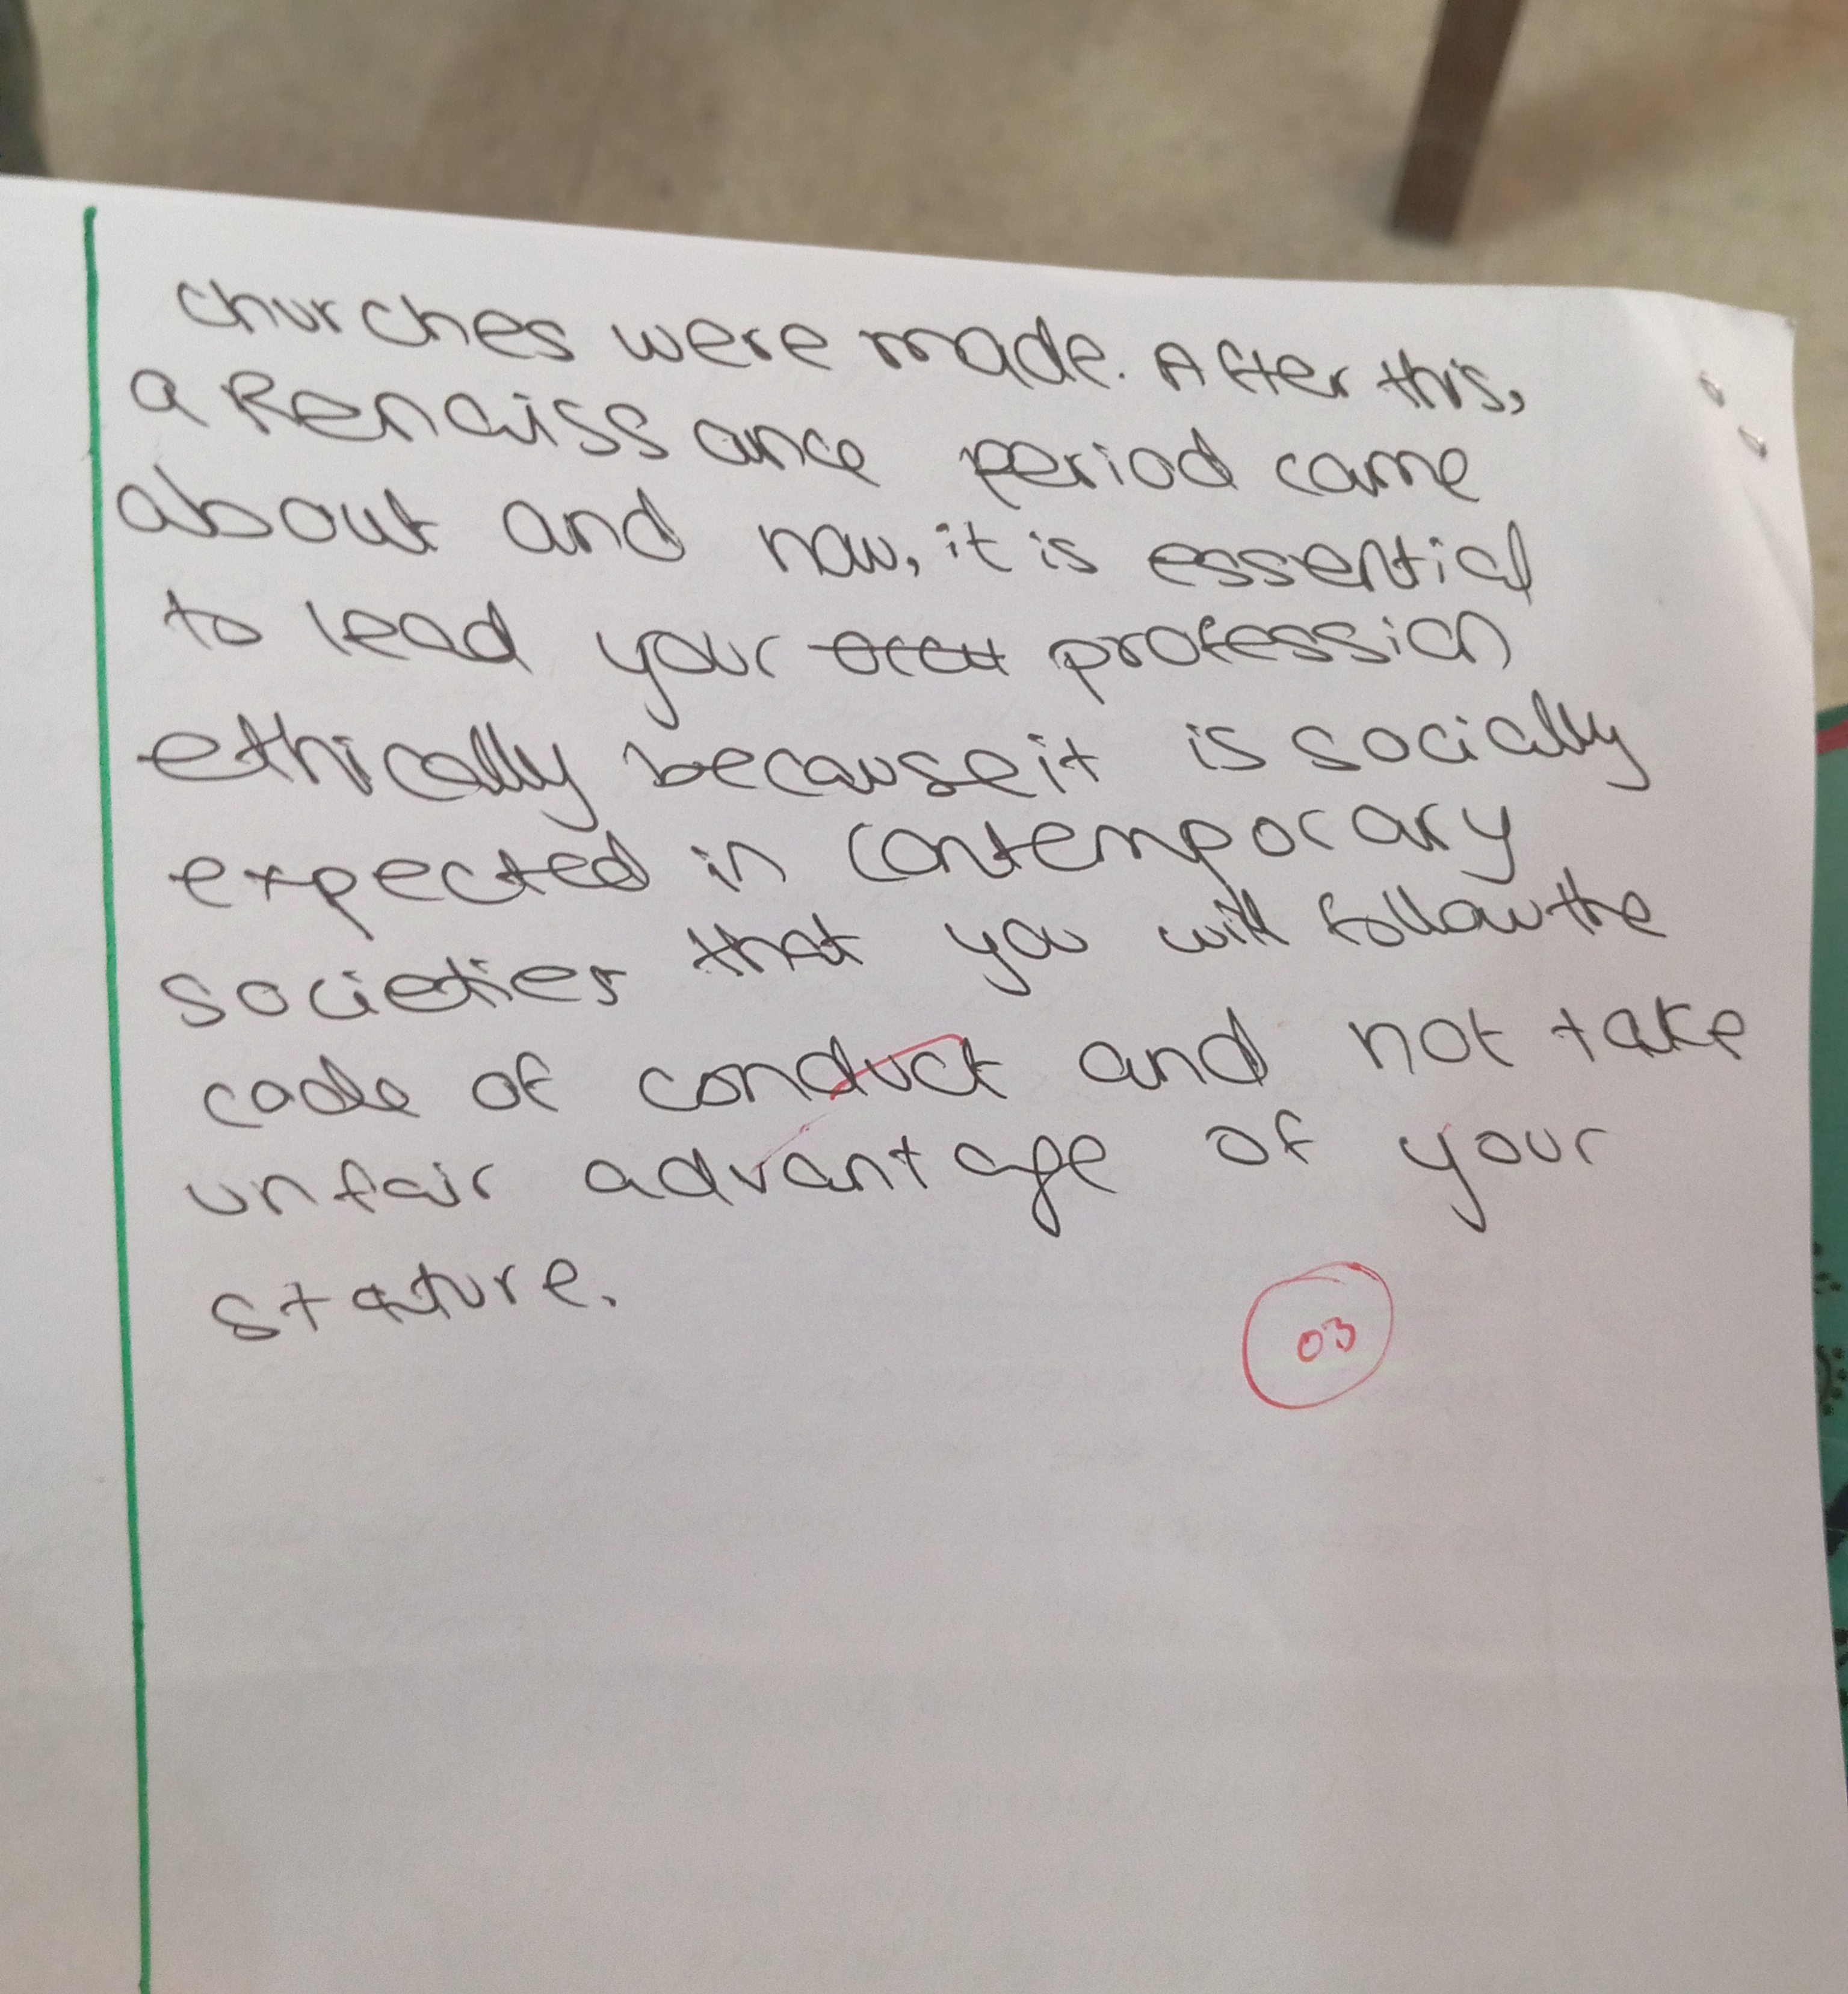 churches were made. After this,
a Renaissance period came
about and now, it is essential
to lead your profession
ethically because it is socially
expected in contemporary
societies that you will follow the
code of conduct and not take
unfair advantage of your
stature.
03